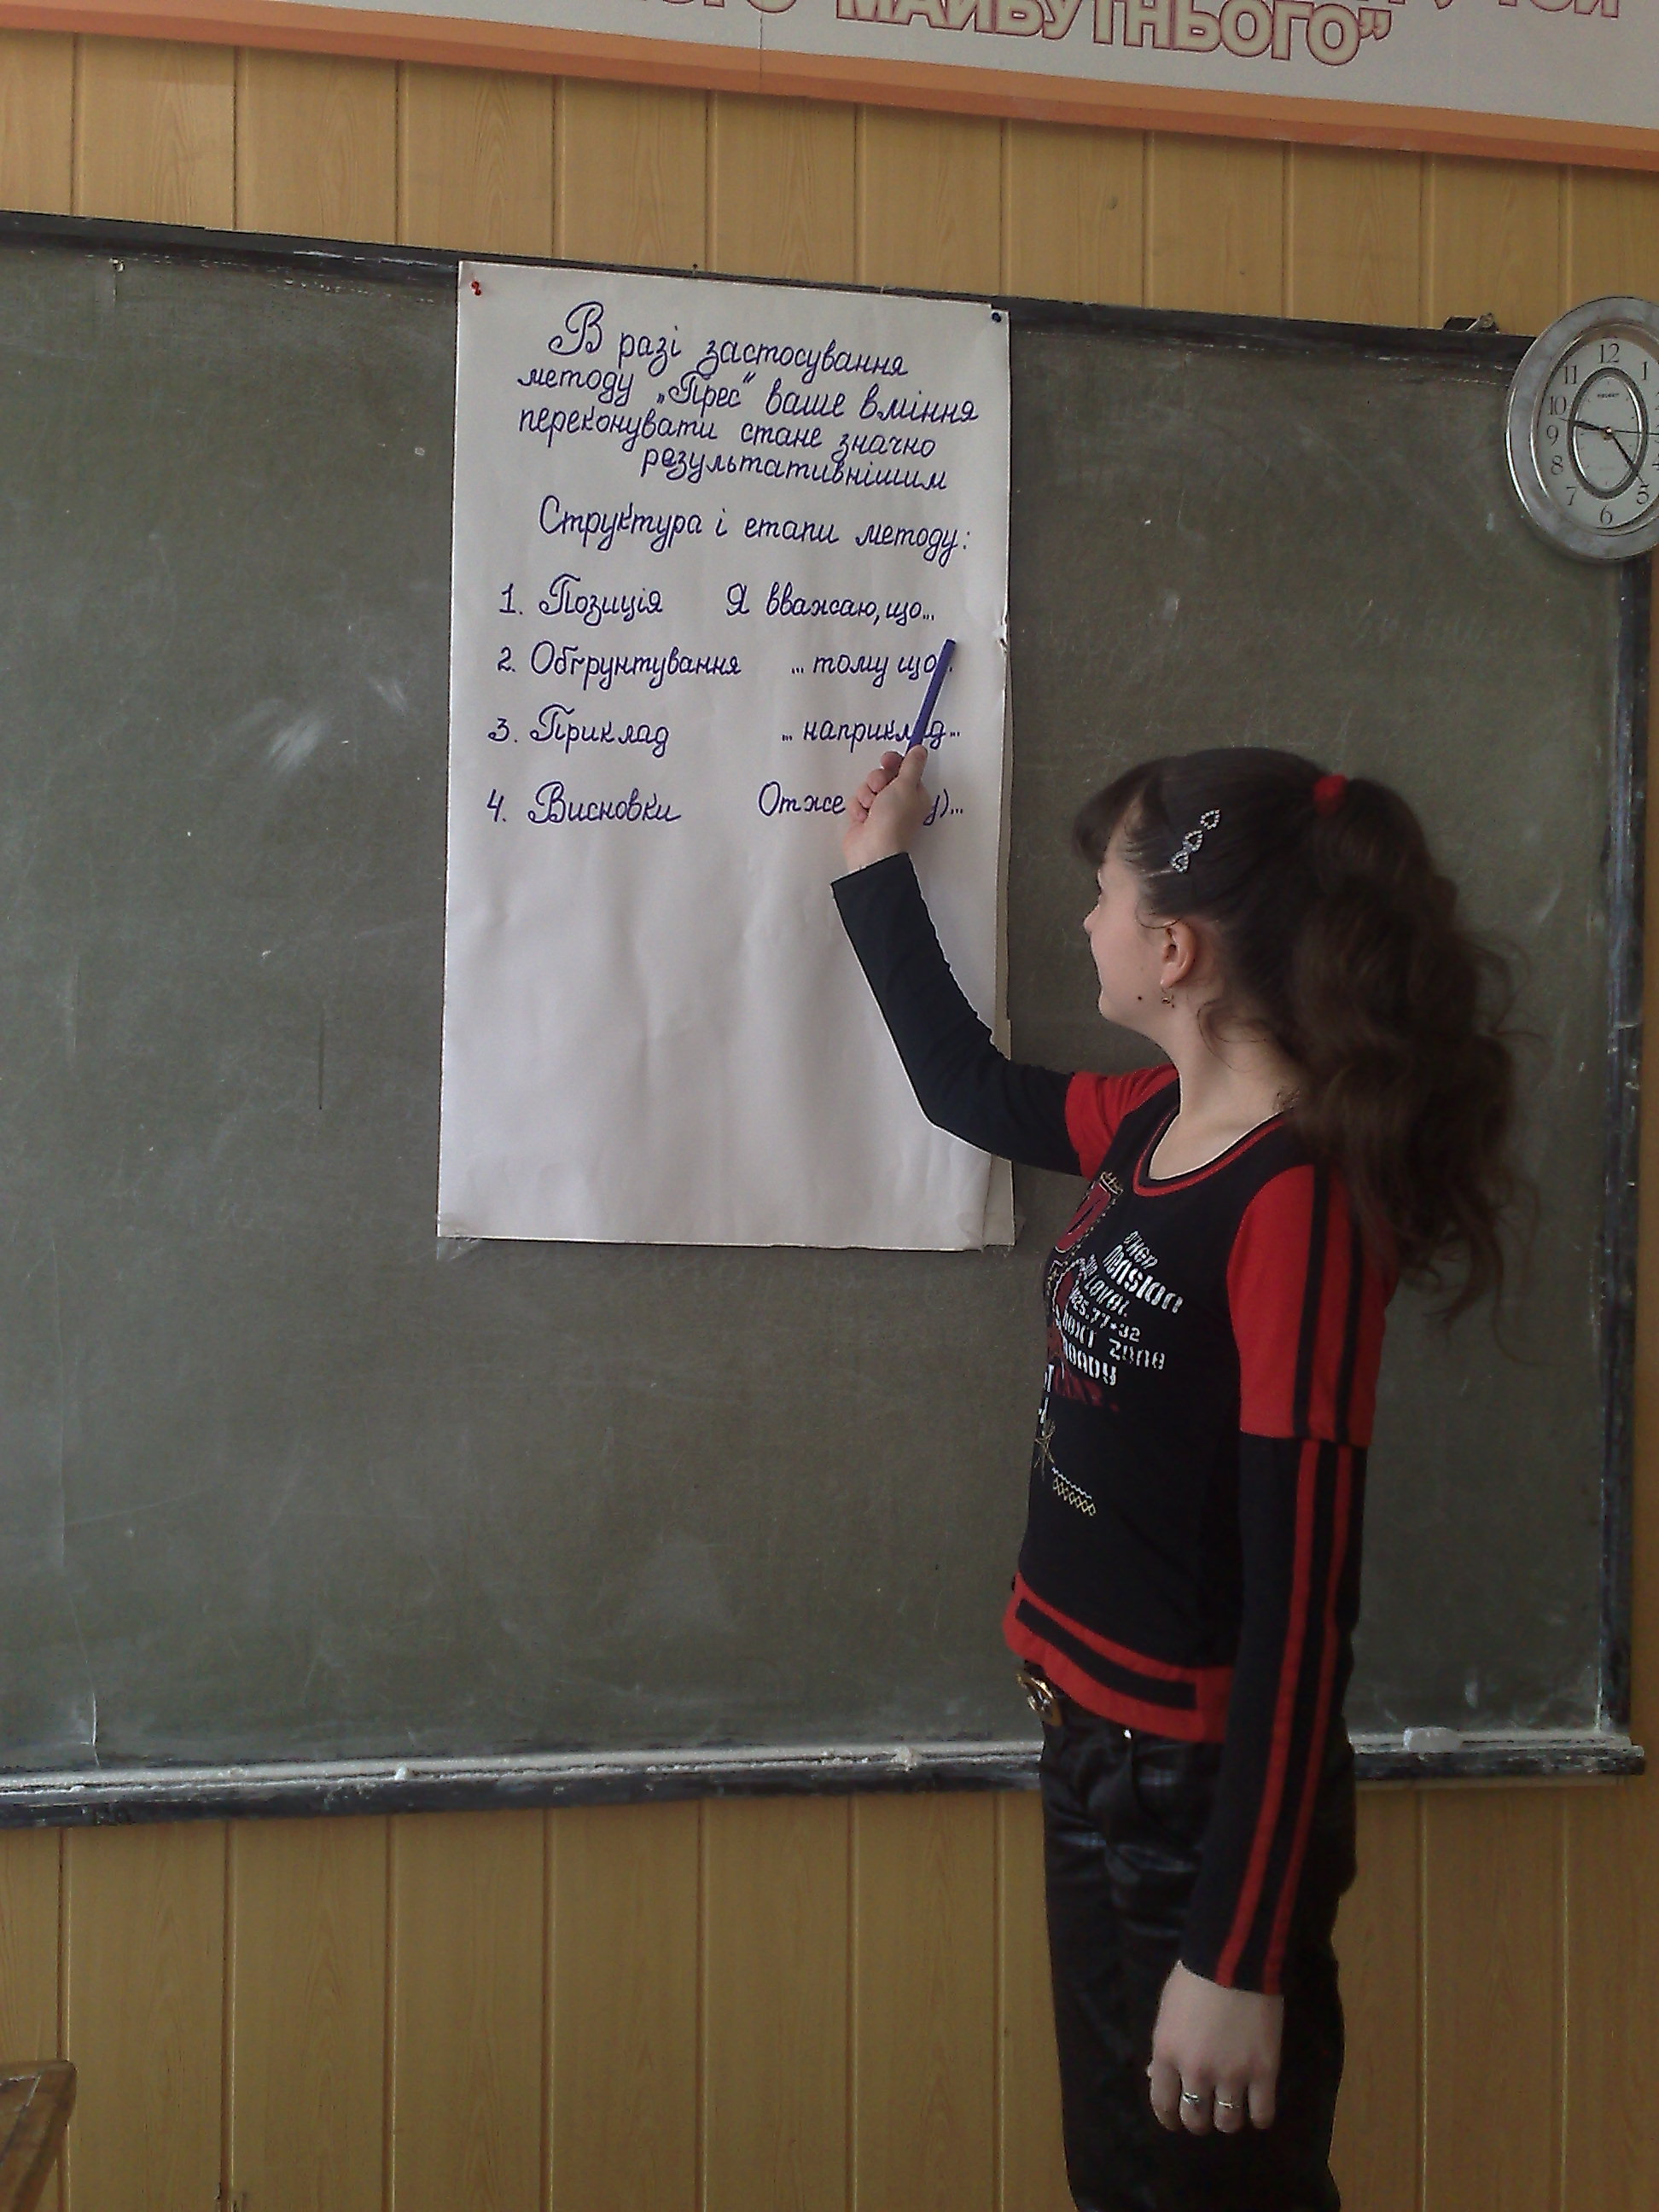 МАЙБУТНЬОГО”
В разі застосування
методу „Прес“ ваше вміння
переконувати стане значно
результативнішим
Структура і етапи методу:
1. Позиція Я вважаю, що...
2. Обґрунтування ... тому що
3. Приклад ... наприклад...
4. Висновки Отже у)...
12
11 1
10
9
8
7 5
6
MENSION
LEVEL
625.77•32